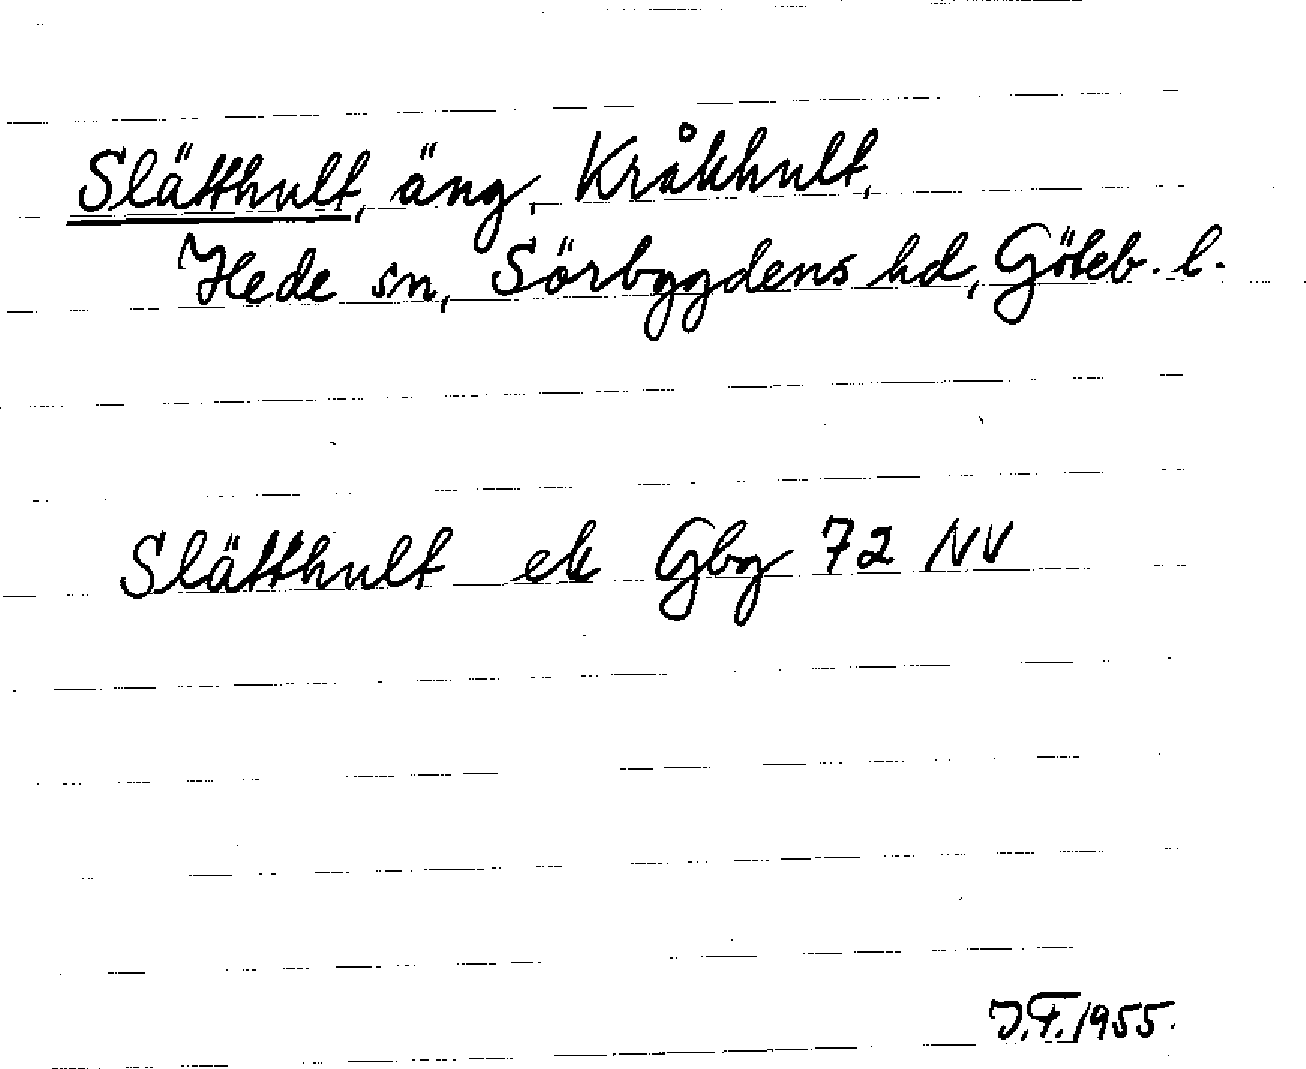 Slätthult, äng, Kråkhult,
Hede sn, Sörbygdens hd, Göteb. l.
Slätthult ek Gbg 72 NV
J.F. 1955.